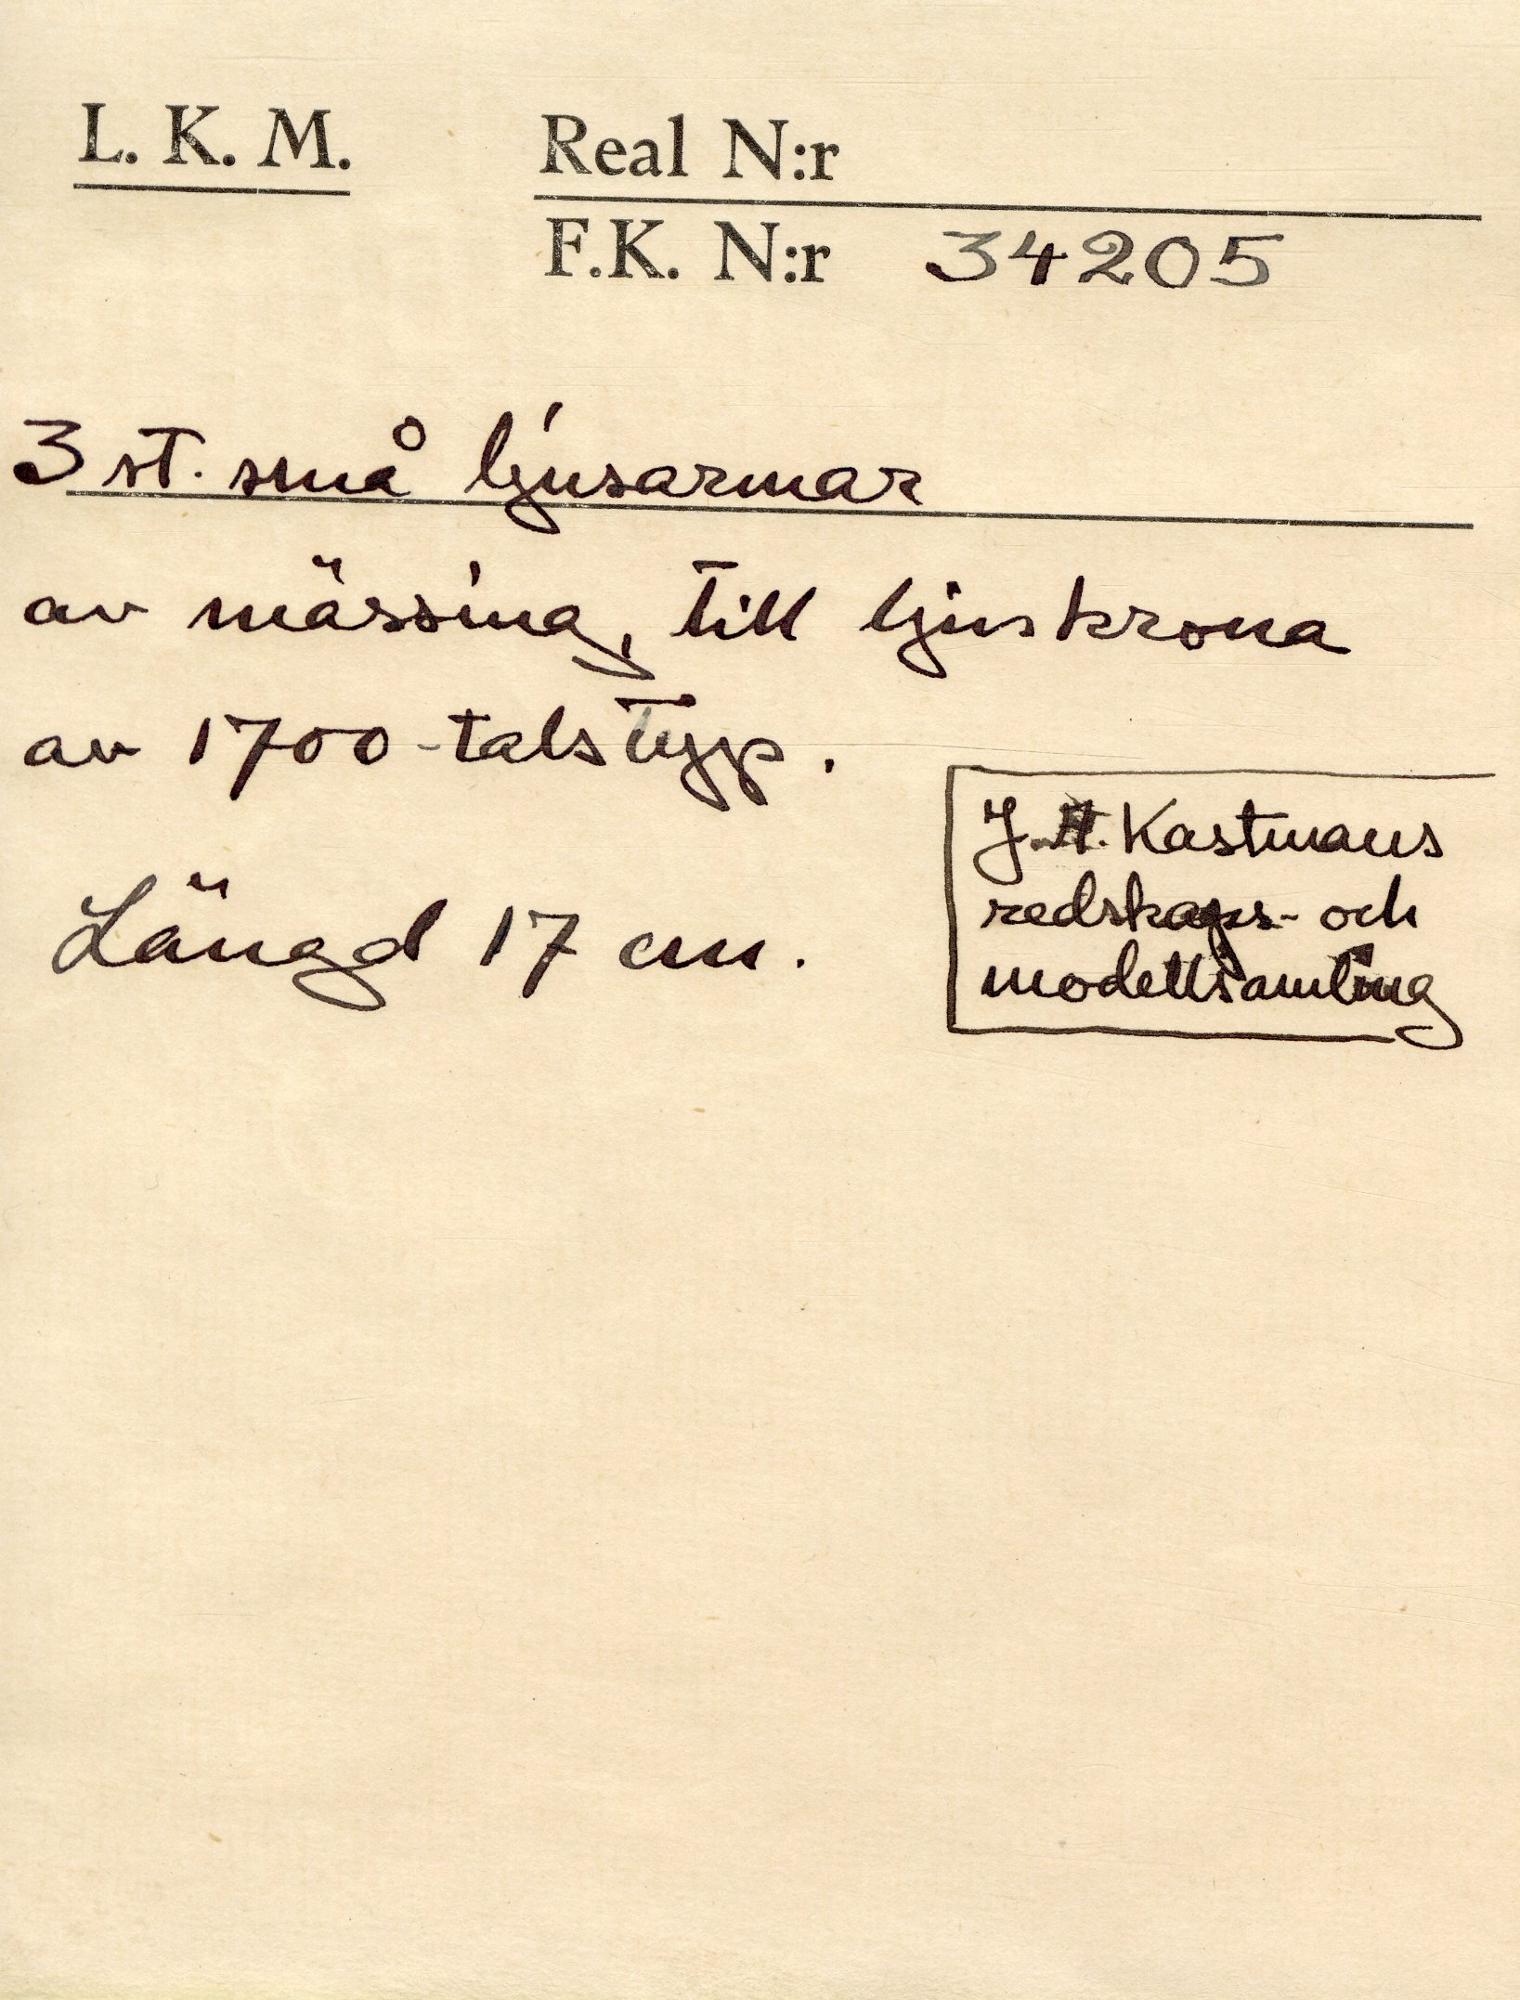 L. K. M.
Real N:r
F.K. N:r 34205
3 st. små ljusarmar
av mässing, till ljuskrona
av 1700-talstyp.
Längd 17 cm.
J. H. Kastmans
redskaps- och
modellsamling